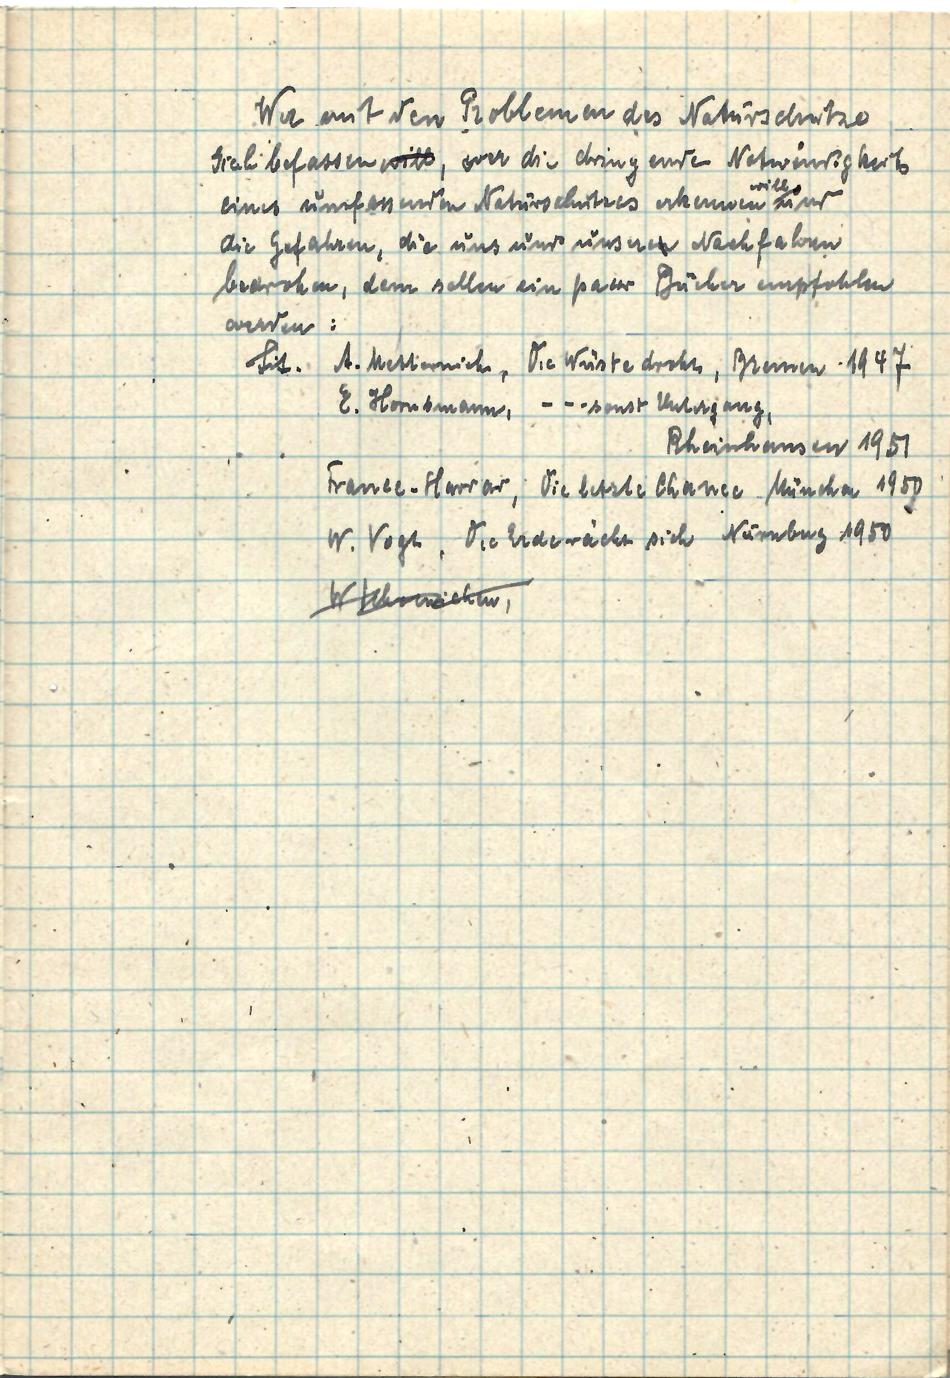 Wer mit den Problemen des Naturschutzes
sich befassen will, wer die dringende Notwendigkeit
eines umfassenden Naturschutzes erkennen will und
die Gefahren, die uns und unseren Nachfahren
bedrohen, dem sollen ein paar Bücher empfohlen
werden :
Lit. A. Metternich, Die Wüste droht, Bremen 1947
E. Hornsmann, - - - sonst Untergang,
Rheinhausen 1951
France-Harrar, Die letzte Chance München 1950
W. Vogt, Die Erde rächt sich Nürnberg 1950
W Schoenichen,